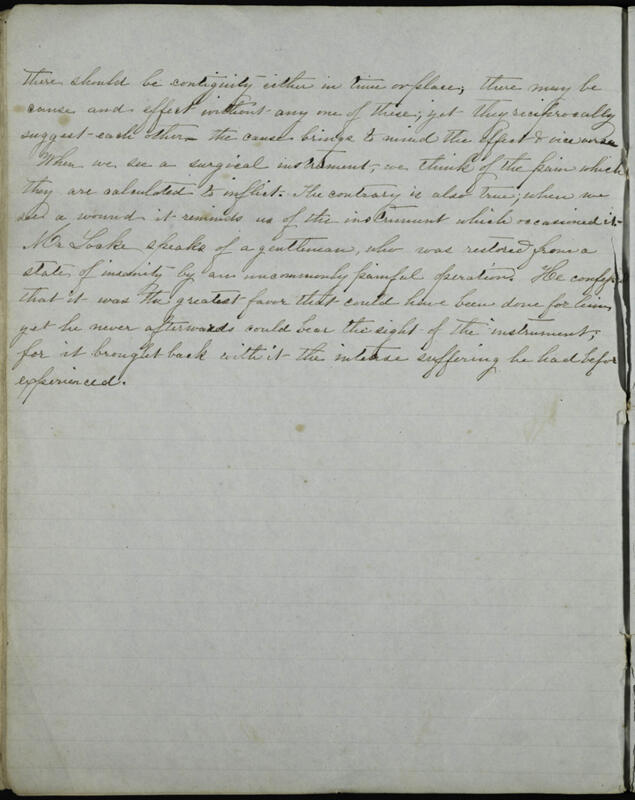 there should be contiguity either in time or place; there may be
cause and effect without any one of these; yet they reciprocally
suggest each other – the cause brings to mind the effect & vice versa
When we see a surgical instrument, we think of the pain which
they are calculated to inflict. The contrary is also true; when we
see a wound it reminds us of the instrument which occasioned it.
Mr Locke speaks of a gentleman, who was restored from a
state of insanity by an uncommonly painful operation. He
that it was the greatest favor that could have been done for him,
yet he never afterwards could bear the sight of the instrument;
for it brought back with it the intense suffering he had before
experienced.